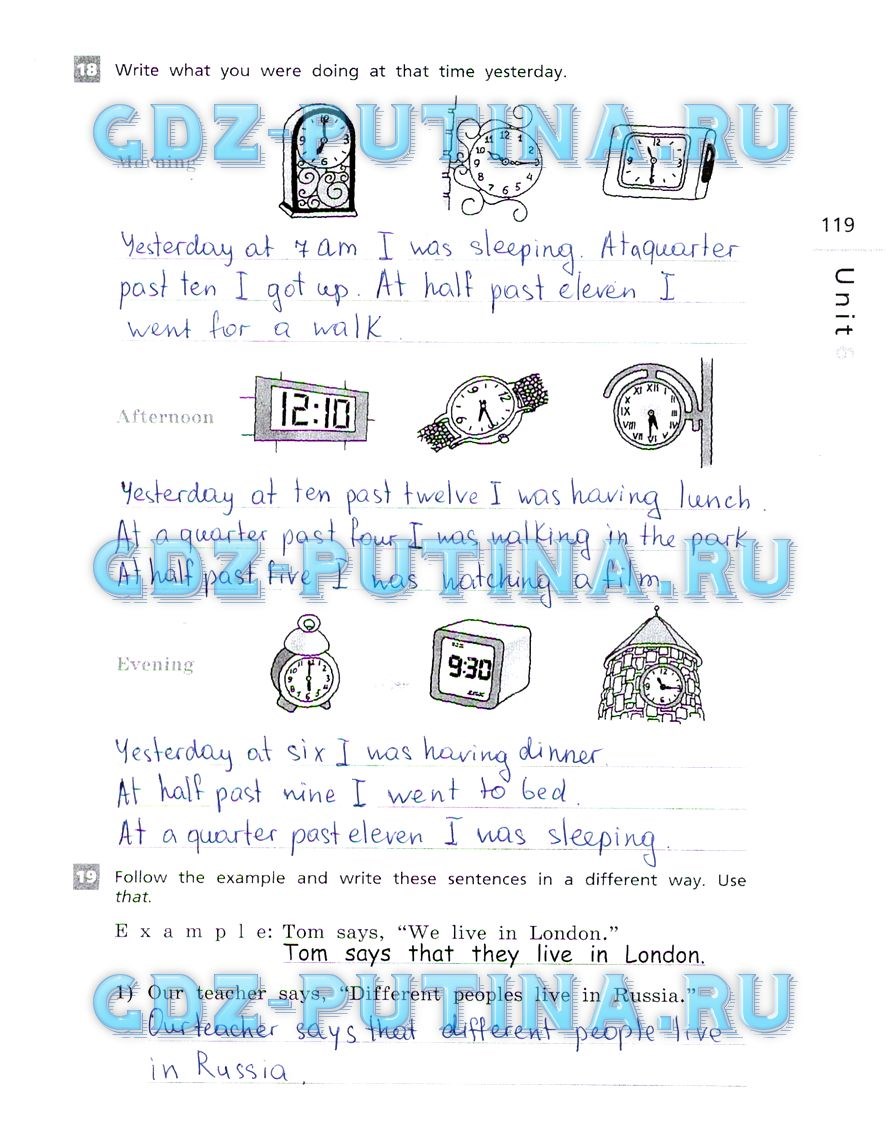 18 Write what you were doing at that time yesterday.
GDZ-PUTINA.RU
Morning
Yesterday at 7 am I was sleeping. At a quarter
past ten I got up. At half past eleven I
went for a walk
119
Unit
Afternoon
12:10
Yesterday at ten past twelve I was having lunch.
At a quarter past four I was walking in the park
At half past five I was watching a film
GDZ-PUTINA.RU
Evening
9:30
Yesterday at six I was having dinner.
At half past nine I went to bed.
At a quarter past eleven I was sleeping.
19 Follow the example and write these sentences in a different way. Use
that.
Example: Tom says, “We live in London.”
Tom says that they live in London.
GDZ-PUTINA.RU
1) Our teacher says, “Different peoples live in Russia.”
Our teacher says that different people live
in Russia.